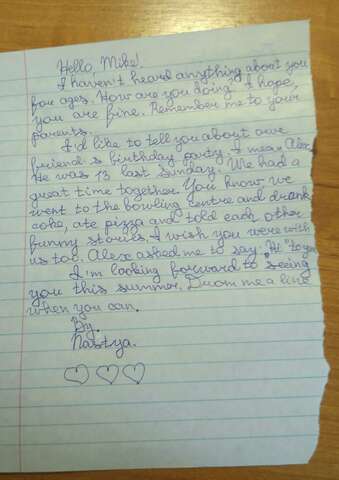 Hello, Mike!
I haven't heard anything about you
for ages. How are you doing? I hope,
you are fine. Remember me to your
parents.
I'd like to tell you about our
friend's birthday party. I mean Alex.
He was 13 last Sunday. We had a
great time together. You know we
went to the bowling centre and drank
coke, ate pizza and told each other
funny stories. I wish you were with
us too. Alex asked me to say "Hi" to you
I'm looking forward to seeing
you this summer. Drop me a line
when you can.
By.
Nastya.